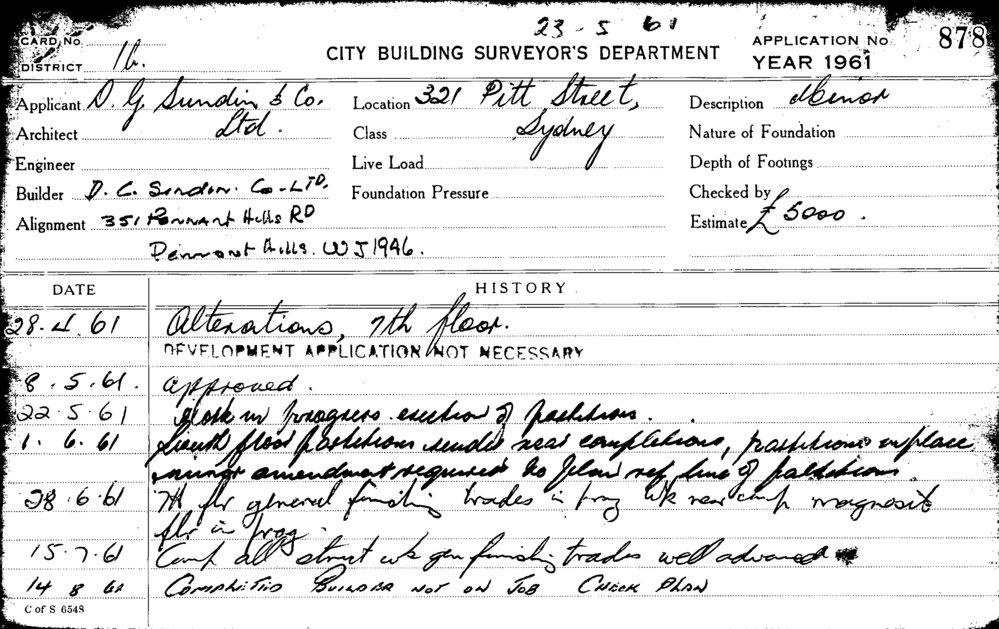 23-5 61
CARD No.
CITY BUILDING SURVEYOR'S DEPARTMENT
APPLICATION No. 878
DISTRICT 16.
YEAR 1961
Applicant D. G. Sundin & Co.
Ltd.
Location 321 Pitt Street,
Sydney
Description Minor
Architect
Class
Nature of Foundation
Engineer
Live Load
Depth of Footings
Builder D. G. Sundin. Co-LTD.
Foundation Pressure
Checked by
Alignment 351 Pennant Hills RD
Estimate £ 5000.
Pennant Hills. WJ1946.
DATE HISTORY
28.4.61 Alterations, 7th floor.
DEVELOPMENT APPLICATION NOT NECESSARY
8.5.61. approved.
22.5.61 Work in progress erection of partitions.
1.6.61 floor partitions near completions, partitions in place
minor amendment required to plan ref line of partitions
28.6.61 7th flr general finishing trades in prog wk near comp magnesit
flr in prog.
15.7.61 Comp all struct wk gen finishing trades well advanced
14 8 61 COMPLETED BUILDER NOT ON JOB CHECK PLAN
C of S 6548